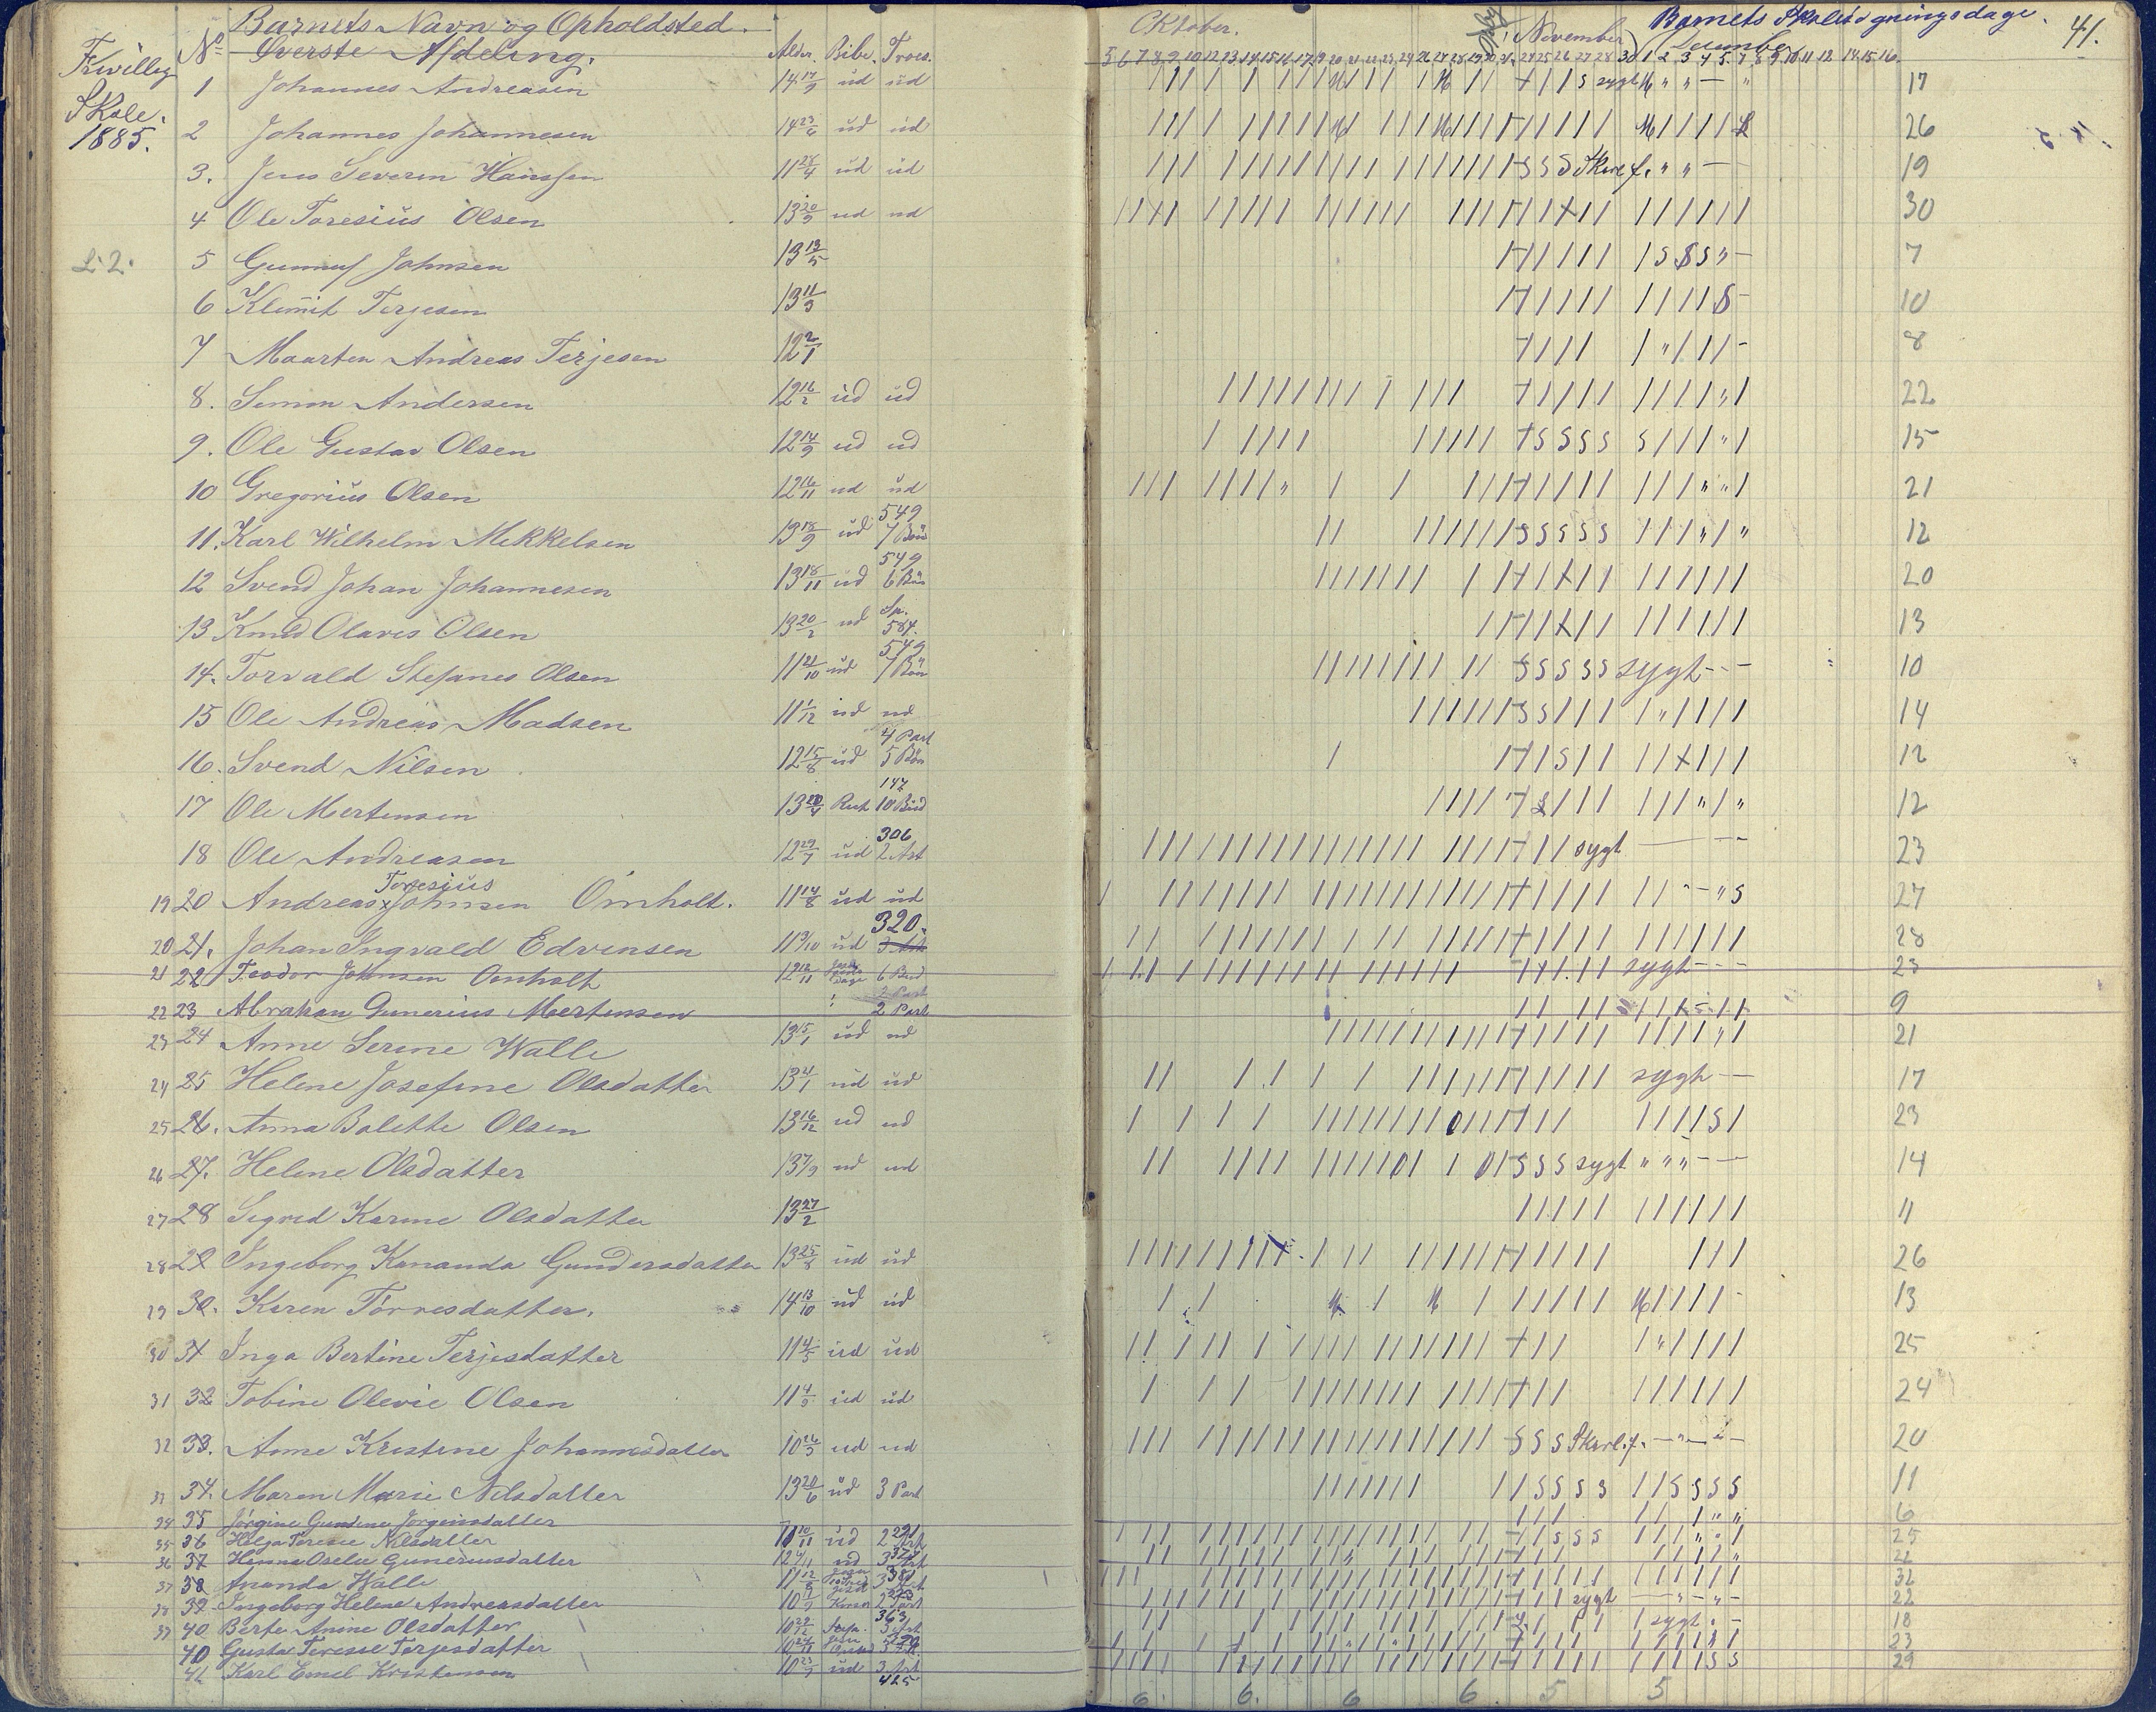 Barnets Navn og Opholdsted.
Frivillig Skole. 1885.
No Øverste Afdeling. Alder. Bibe. Troes.
1 Johannes Andreasen 14 ud ud
2 Johannes Johannesen 14 23/6 ud ud
3. Jens Severin Hansen 11 ud ud
4 Ole Toresius Olsen 13 20/9 ud ud
L. 2.
5 Gunnuf Johnsen 13 13/5
6 Klemit Terjesen 13 11/9
7 Maarten Andreas Terjesen 12 2/1
8. Simon Andersen 12 16/2 ud ud
9. Ole Gustav Olsen 12 14/9 ud ud
10 Gregorius Olsen 12 16/11 ud ud
11. Karl Wilhelm Mikkelsen 13 18/9 ud 549 7 Bön
12 Svend Johan Johannesen 13 18/11 ud 549 6 Bön
13 Knud Olaves Olsen 13 20/2 ud 584.
14. Torvald Stefanes Olsen 11 21/10 ud 549 7 Bön
15 Ole Andreas Madsen 11 1/12 ud ud
16. Svend Nilsen 12 15/8 ud 4 Part 5 Bön
17 Ole Mertensen 13 Rut 147 10 Bud
18 Ole Andreasen 12 29/7 ud 306 2 Art
19 20 Andreas Toresius Johnsen Omholt. 11 14/8 ud ud
20 21. Johan Ingvald Edvinsen 11 9/10 ud 320.
21 22 Teodor Johnsen Omholt 12 12/11 6 Bud
22 23 Abraham Gunerius Mertensen 2 Part
23 24 Anne Serine Walle 13 15/1 ud ud
24 25 Helene Josefine Olsdatter 13 4/1 ud ud
25 26. Anna Bolette Olsen 13 16/12 ud ud
26 27. Helene Olsdatter 13 7/9 ud ud
27 28 Sigrid Karine Olsdatter 13 27/2
28 29 Ingeborg Kananda Gundersdatter 13 25/8 ud ud
29 30. Karen Törresdatter. 14 13/10 ud ud
30 31 Inga Bertine Terjesdatter 11 4/5 ud ud
31 32 Tobine Olevie Olsen 11 4/9 ud ud
32 33. Anne Kristine Johannesdatter 10 26/3 ud ud
33 34. Maren Marie Nilsdatter 13 20/6 ud 3 Part
34 35 Jörgine Gundine Jörgensdatter
35 36 Helga Terese Nilsdatter 11 10/11 ud 221 2 Art
36 37 Hanna Oselie Guneriusdatter 12 4/11 ud
37 38 Ananda Walle 11 12/8 381
38 39 Ingeborg Helene Andreasdatter 10
39 40 Berte Anine Olsdatter 10 29/12 363
40 Gusta Terese Terjesdatter 10
41 Karl Emil Kristensen 10 23/9 ud 3 Art 425
Barnets Skolesøgningsdage. 41.
Oktober. November December
5 6 7 8 9 10 12 13 14 15 16 17 19 20 21 22 23 24 26 27 28 29 30 31 24 25 26 27 28 30 1 2 3 4 5 7 8 9 10 11 12 14 15 16
sygt 17
26
Skarl.f. 19
30
7
10
8
22
15
21
12
20
13
sygt 10
14
12
12
sygt 23
27
28
sygt 23
9
21
sygt 17
23
sygt 14
11
26
13
25
24
Skarl.f. 20
11
6
25
32
sygt 22
sygt 18
23
29
6. 6. 6 6. 5 5